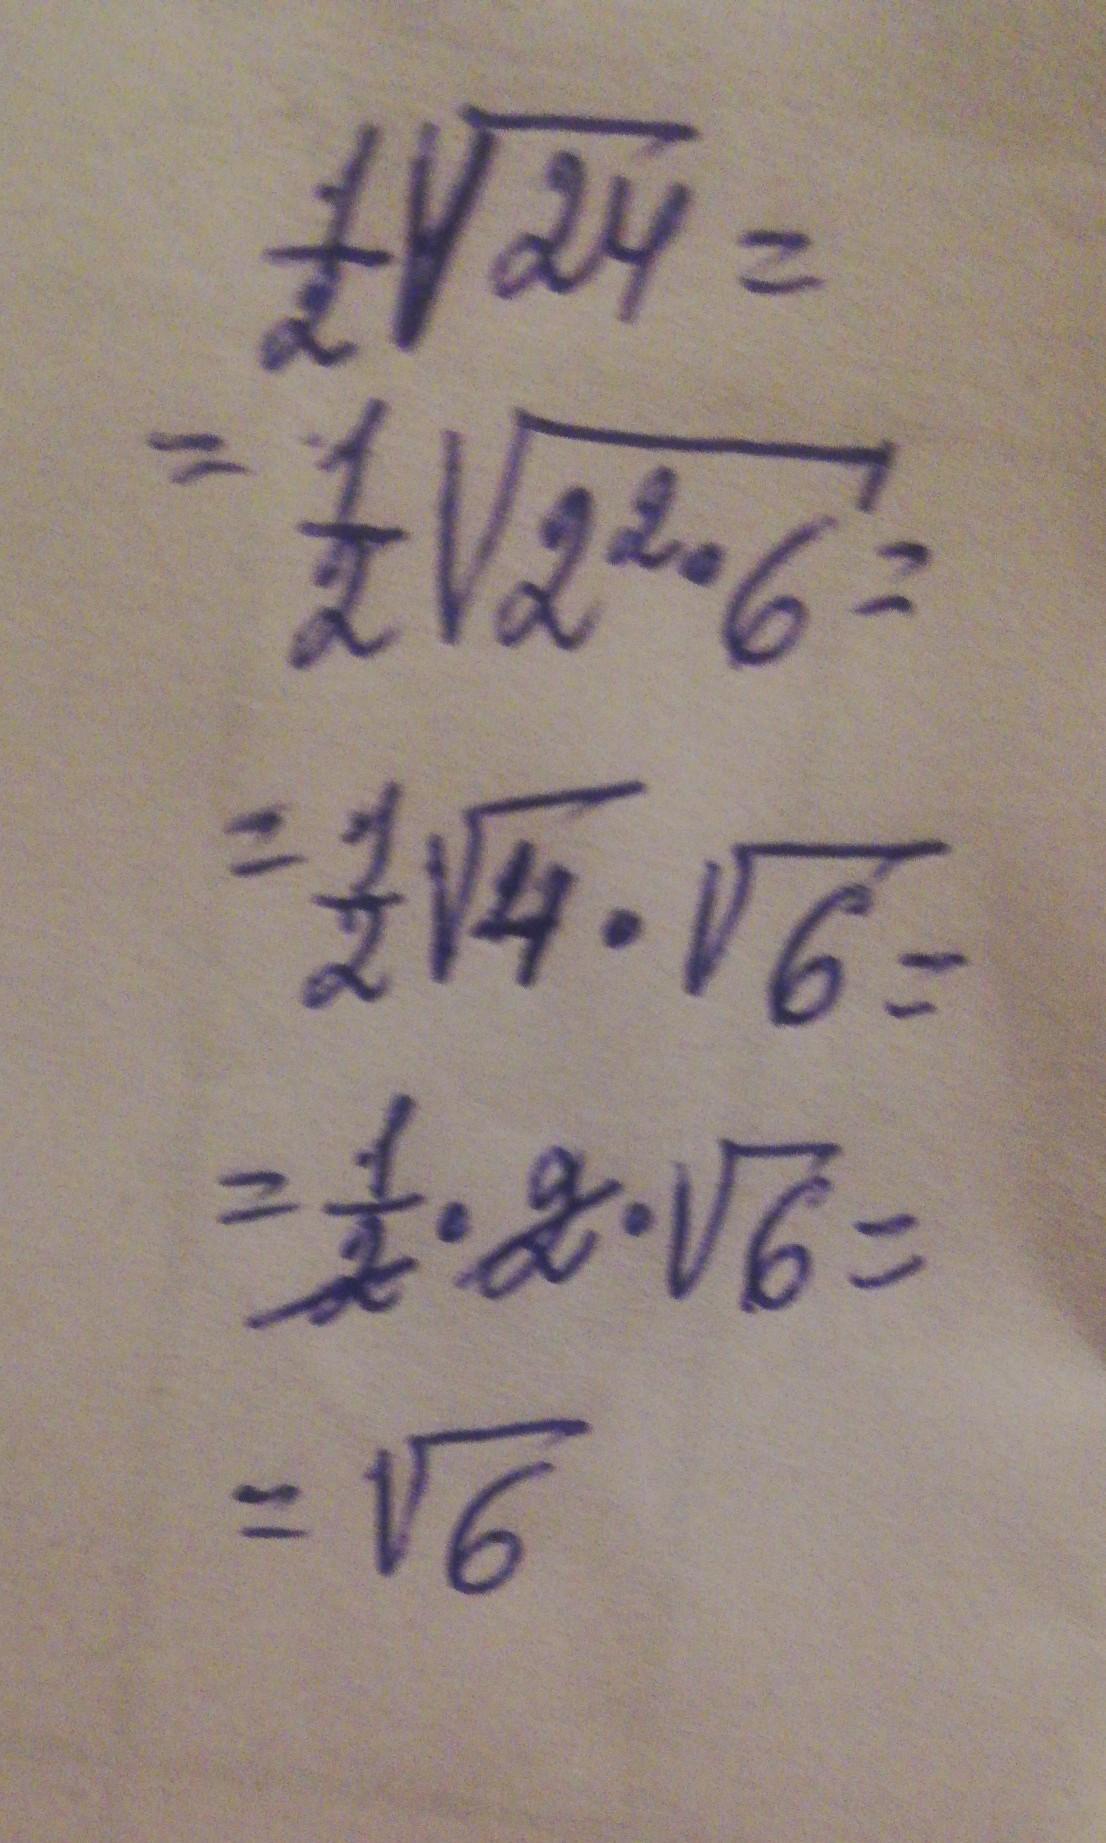 ½√24 =
= ½√2²·6 =
= ½√4 · √6 =
= ½ · 2 · √6 =
= √6